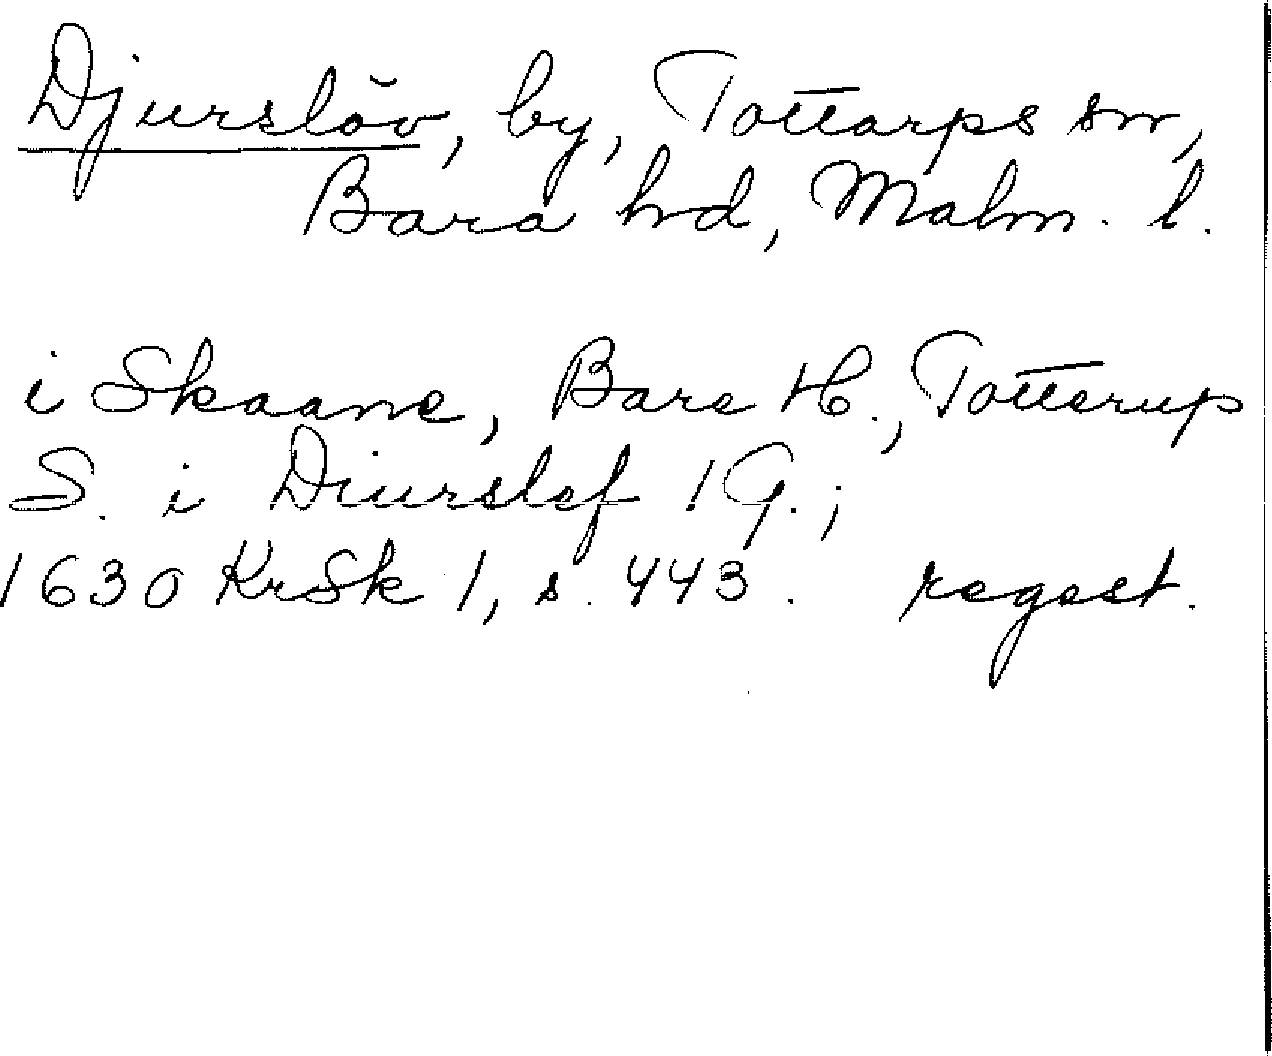 Djurslöv, by, Tottarps sn,
Bara hd, Malm. l.
i Skaane, Bare H., Totterup
S. i Diurslef 1 G.;
1630 KrSk 1, s. 443. regest.